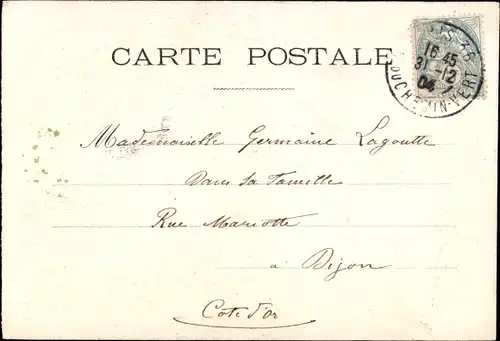 CARTE POSTALE
16 45
31 -12
04
DU CHEMIN-VERT
Mademoiselle Germaine Lagoutte
Dans sa famille
Rue Mariotte
à Dijon
Cote d'or